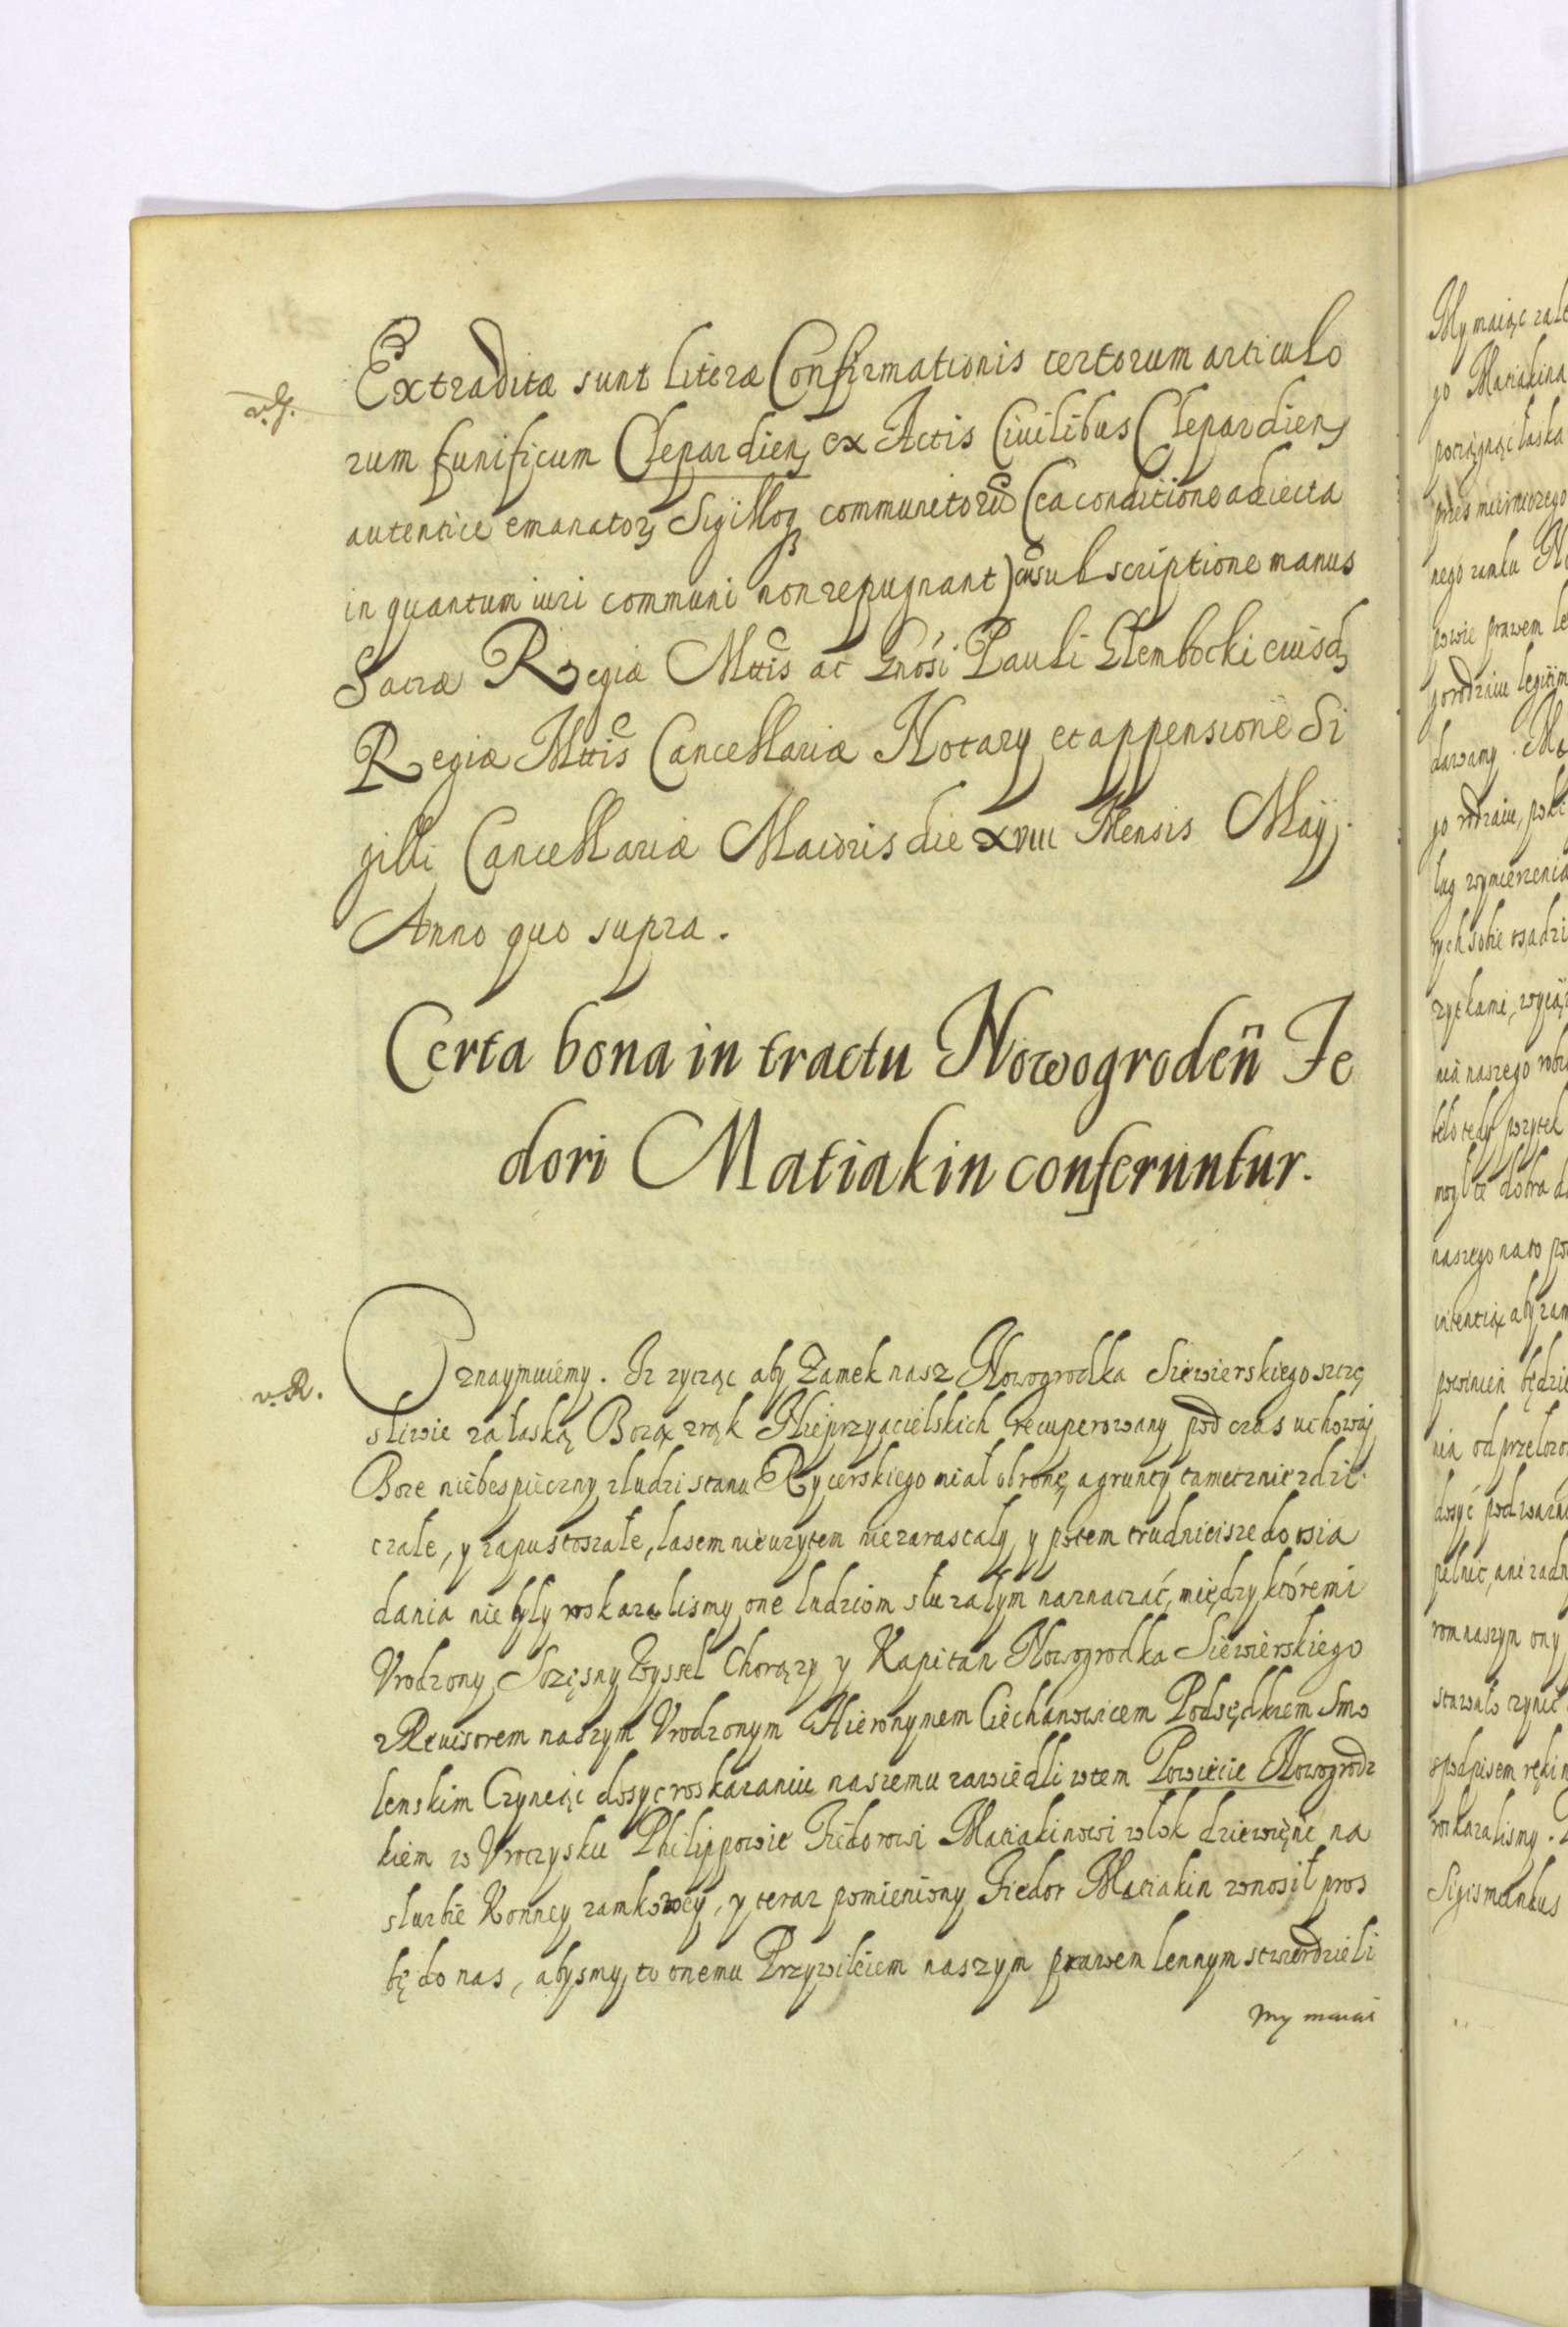 Extraditæ sunt literæ Confirmationis certorum articulo
rum funificum Clepardien ex Actis Ciuilibus Clepardien
autentice emanator Sigilloq communitorũ (ea conditione adiecta
in quantum iuri communi non repugnant) cũ subscriptione manus
Sacræ Regiæ Mttis ac Gnosi Pauli Glembocki eiusd
Regiæ Mttis Cancellariæ Notary et appensione Si
gilli Cancellariæ Maioris die XVIII Mensis Maÿ.
Anno quo supra.
Certa bona in tractu Nowogrodeñ Fe
dori Matiakin conferuntur.
v. R.
Oznaymuiemy. Iz zycząc aby Zamek nasz Nowogrodka Siewierskiego szczę
sliwie za łaską Bozą z rąk Nieprzyacielskich recuperowany pod czas uchoway
Boze niebespieczny z ludzi stanu Rycerskiego miał obronę, a grunty tameczne zdzi
czałe, y zapustoszałe, lasem nieuzytem niezarastały y potem trudnieisze do osia
dania nie były roskazalismy one ludziom słuzałym naznaczać, między któremi
Vrodzony Szczęsny Wyssel Chorązy y Kapitan Nowogrodka Siewierskiego
z Reuisorem naszym Vrodzonym Hieronymem Ciechanowicem Podsędkiem Smo
lenskim Czyniąc dosyc roskazaniu naszemu zawiedli w tem Powiecie Nowogrodz
kiem w Vroczysku Philippowie Fiedorowi Matiakinowi włok dziewięnc na
słuzbie Konney zamkowey, y teraz pomieniony Fiedor Matiakin wnosił pros
bę do nas, abysmy to onemu Przywileiem naszym prawem lennym stwierdzieli
My maiąc
My maiąc
go Matiakina
pociągnąc łaska
nego zamku
powie prawem
dawamy
go rodzaiu,
naszego na to
powinien będzie
rom naszym ony
roskazalismy.
Sigismundus